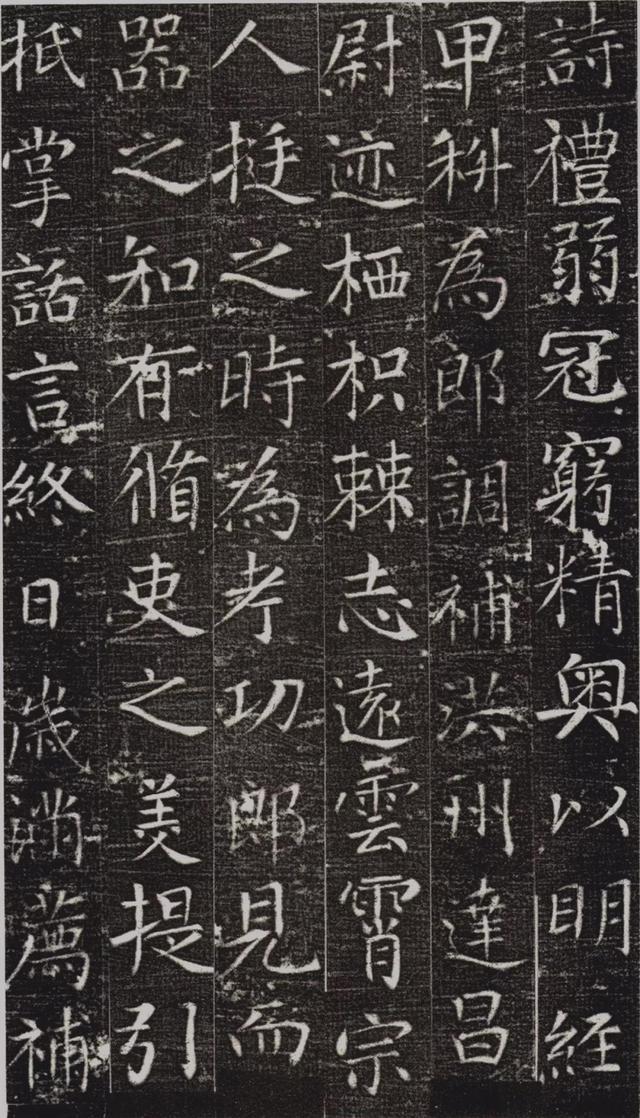 詩禮弱冠窮精奧以明經
甲科為郎調補洪州建昌
尉迹栖枳棘志遠雲霄宗
人挺之時為考功郎見而
器之知有循吏之美提引
抵掌話言終日歲滿薦補